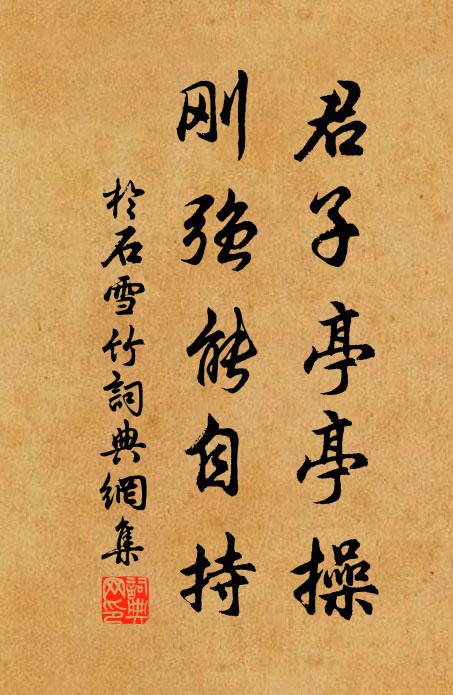 君子亭亭操
刚强能自持
於石雪竹詞典網集
詞典網印